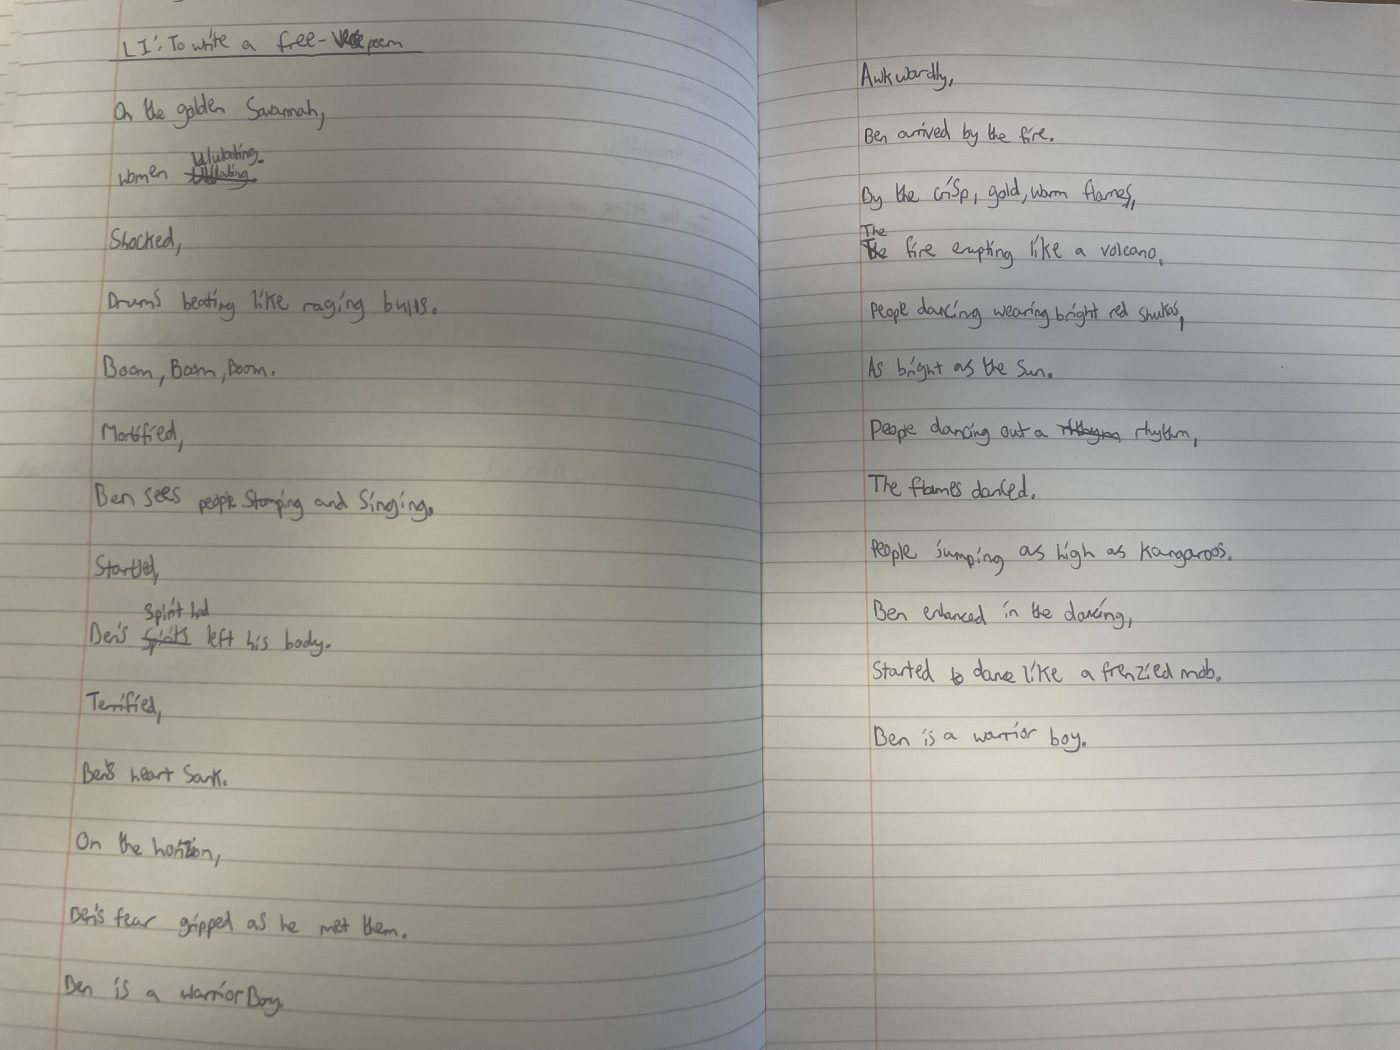 LI: To write a free-verse poem
On the golden Savannah,
women Ululating.
Shocked,
Drums beating like raging bulls.
Boom, Boom, Boom.
Mortified,
Ben sees people Stomping and Singing.
Startled,
Ben's Spirit had left his body.
Terrified,
Ben's heart Sank.
On the horizon,
Ben's fear gripped as he met them.
Ben is a warrior Boy.
Awkwardly,
Ben arrived by the fire.
By the crisp, gold, warm flames,
The fire erupting like a volcano,
People dancing wearing bright red shukas,
As bright as the Sun.
People dancing out a rhythm,
The flames danced.
People jumping as high as Kangaroos.
Ben enhanced in the dancing,
Started to dance like a frenzied mob.
Ben is a warrior boy.